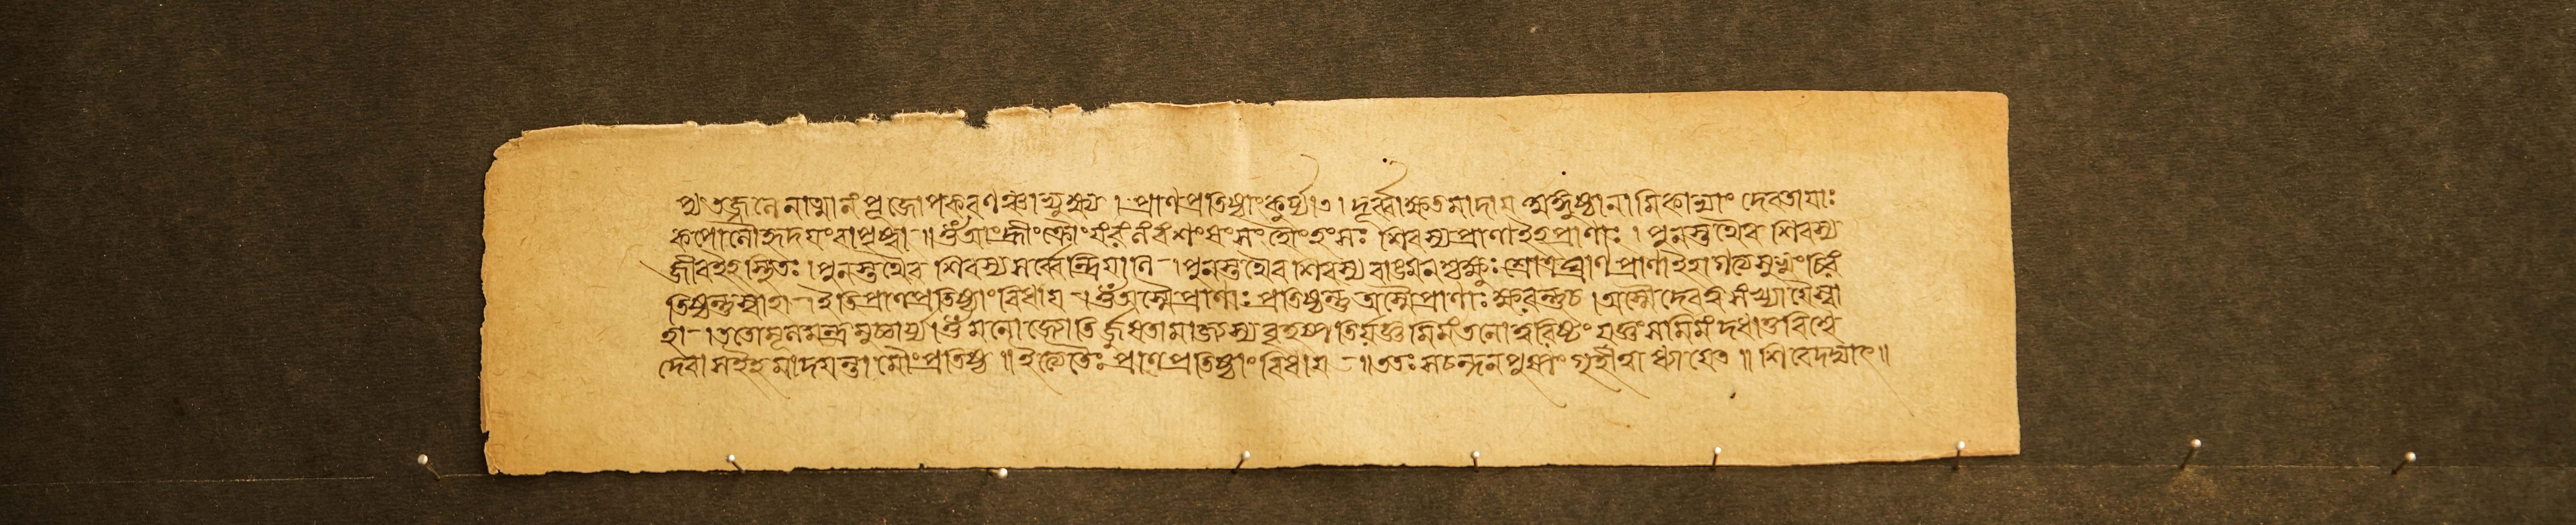 প্য তজ্জলেনাত্মানং পূজোপকরণঞ্চাভ্যুক্ষ্য । প্রাণপ্রতিষ্ঠাং কুর্য্যাত । দূর্ব্বাক্ষতমাদায় অঙ্গুষ্ঠানামিকাভ্যাং দেবতায়াঃ
কপোলৌ হৃদয়ং বা স্পৃষ্ট্বা ॥ ওঁ আং হ্রীং ক্রোং যঁ রঁ লঁ বঁ শং ষং সং হৌং হং সঃ শিবস্য প্রাণা ইহ প্রাণাঃ । পুনস্তথৈব শিবস্য
জীব ইহ স্থিতঃ । পুনস্তথৈব শিবস্য সর্ব্বেন্দ্রিয়াণি । পুনস্তথৈব শিবস্য বাঙ্মনশ্চক্ষুঃ শ্রোত্রঘ্রাণপ্রাণা ইহাগত্য সুখং চিরং
তিষ্ঠন্তু স্বাহা । ইতি প্রাণপ্রতিষ্ঠাং বিধায় । ওঁ অস্মৈ প্রাণাঃ প্রতিষ্ঠন্তু অস্মৈ প্রাণাঃ ক্ষরন্তু চ । অস্মৈ দেবত্বসংখ্যায়ৈ স্বা
হা । ততো মূলমন্ত্রমুচ্চার্য্য । ওঁ মনো জ্যোতির্জুষতামাজ্যস্য বৃহস্পতির্যজ্ঞমিমং তনোত্বরিষ্টং যজ্ঞং সমিমং দধাতু বিশ্বে
দেবাস ইহ মাদয়ন্তামোং প্রতিষ্ঠ ॥ ইত্যেতৈঃ প্রাণপ্রতিষ্ঠাং বিধায় ॥ ততঃ সচন্দনপুষ্পং গৃহীত্বা ধ্যায়েত ॥ শিবেদদ্যাৎ ॥